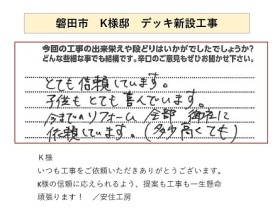 磐田市　K様邸　デッキ新設工事
今回の工事の出来栄えや段どりはいかがでしたでしょうか?
どんな些細な事でも結構です。辛口のご意見もぜひお聞かせ下さい。
とても信頼しています。
子供もとても喜んでいます。
今までのリフォーム 全部 御社に
依頼しています。(多少高くても)
K様
いつも工事をご依頼いただきありがとうございます。
K様の信頼に応えられるよう、提案も工事も一生懸命
頑張ります!　／安住工房